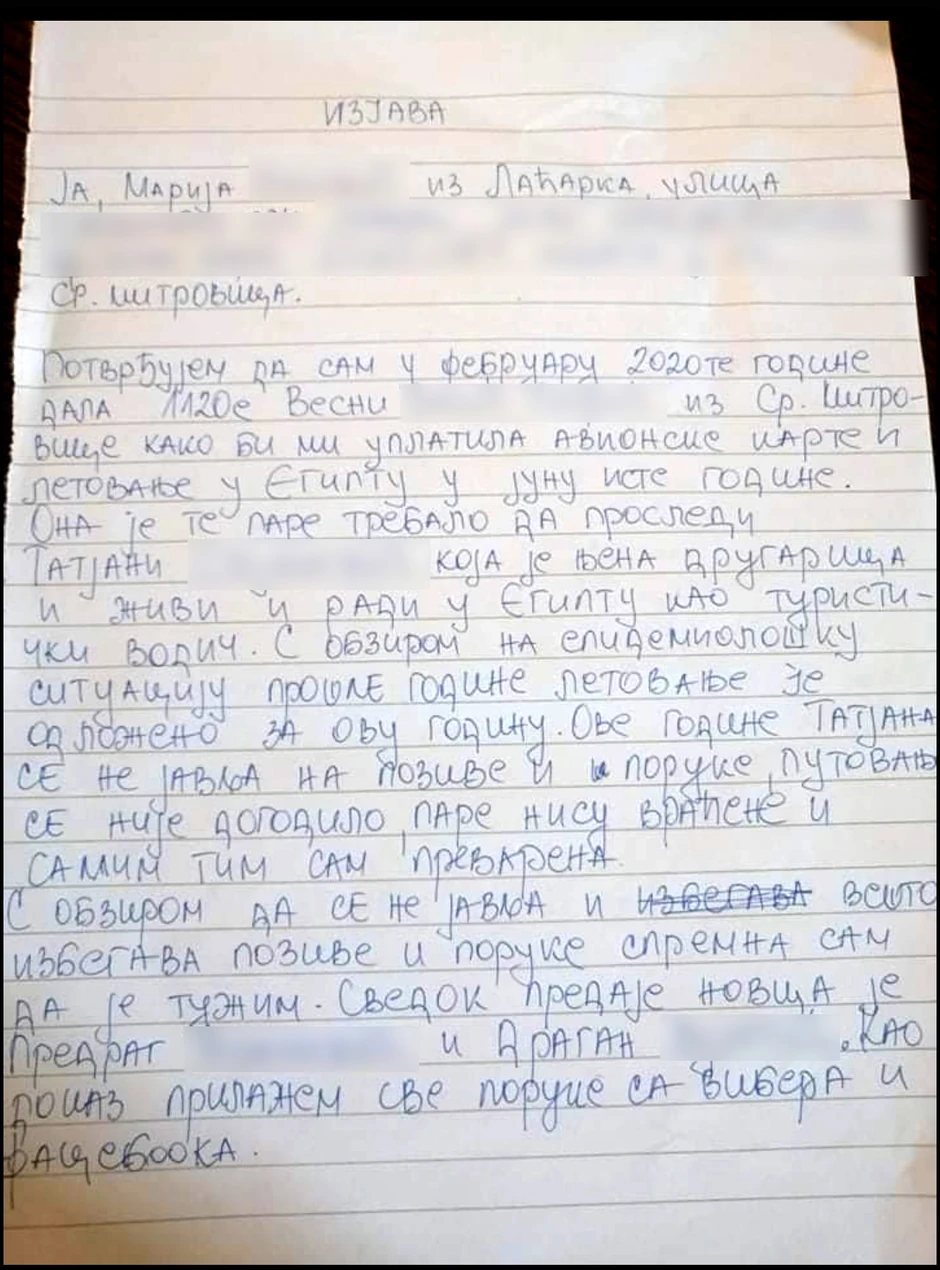 ИЗЈАВА
ЈА, МАРИЈА ИЗ ЛАЋАРКА, УЛИЦА
СР. МИТРОВИЦА.
ПОТВРЂУЈЕМ ДА САМ У ФЕБРУАРУ 2020ТЕ ГОДИНЕ
ДАЛА 1120е ВЕСНИ ИЗ СР. МИТРО-
ВИЦЕ КАКО БИ МИ УПЛАТИЛА АВИОНСКЕ КАРТЕ И
ЛЕТОВАЊЕ У ЕГИПТУ У ЈУНУ ИСТЕ ГОДИНЕ.
ОНА ЈЕ ТЕ ПАРЕ ТРЕБАЛО ДА ПРОСЛЕДИ
ТАТЈАНИ КОЈА ЈЕ ЊЕНА ДРУГАРИЦА
И ЖИВИ И РАДИ У ЕГИПТУ КАО ТУРИСТИ-
ЧКИ ВОДИЧ. С ОБЗИРОМ НА ЕПИДЕМИОЛОШКУ
СИТУАЦИЈУ ПРОШЛЕ ГОДИНЕ ЛЕТОВАЊЕ ЈЕ
ОДЛОЖЕНО ЗА ОВУ ГОДИНУ. ОВЕ ГОДИНЕ ТАТЈАНА
СЕ НЕ ЈАВЉА НА ПОЗИВЕ И ПОРУКЕ, ПУТОВАЊЕ
СЕ НИЈЕ ДОГОДИЛО, ПАРЕ НИСУ ВРАЋЕНЕ И
САМИМ ТИМ САМ ПРЕВАРЕНА.
С ОБЗИРОМ ДА СЕ НЕ ЈАВЉА И ИЗБЕГАВА ВЕШТО
ИЗБЕГАВА ПОЗИВЕ И ПОРУКЕ СПРЕМНА САМ
ДА ЈЕ ТУЖИМ. СВЕДОК ПРЕДАЈЕ НОВЦА ЈЕ
ПРЕДРАГ И ДРАГАН . КАО
ДОКАЗ ПРИЛАЖЕМ СВЕ ПОРУКЕ СА ВИБЕРА И
ФАЦЕБООКА.